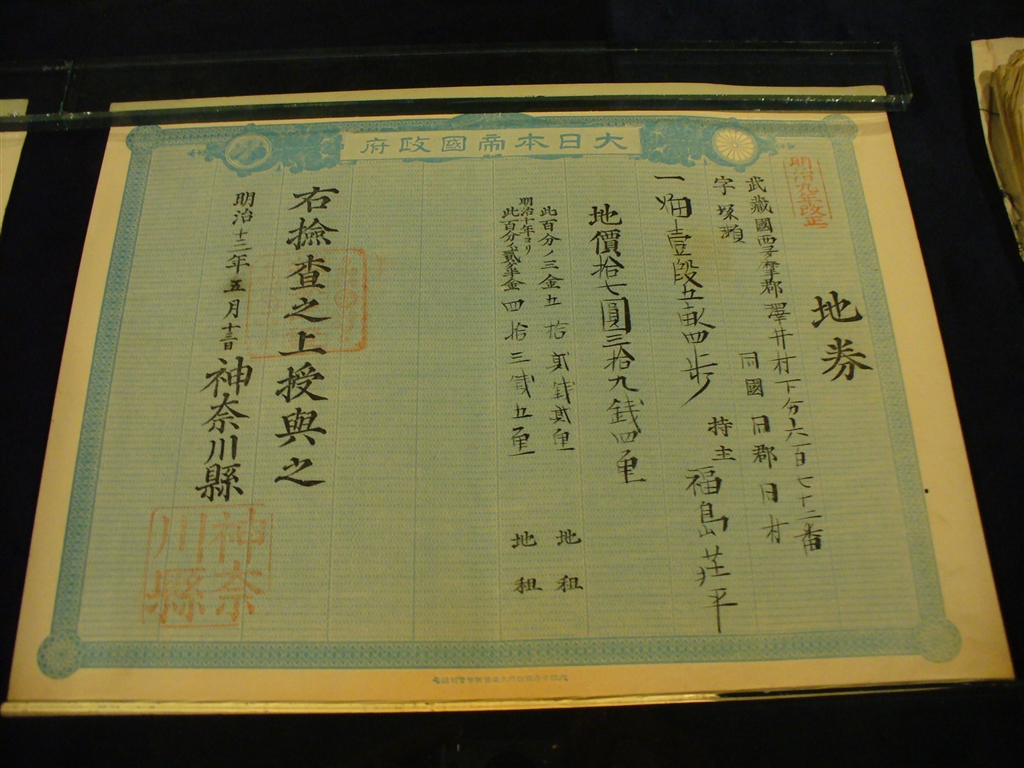 大日本帝國政府
明治九年改正
地券
武藏國西多摩郡澤井村下分六百七十二番
字
同國同郡同村
持主 福島荘平
一畑壹段五畝四歩
地價拾七圓三拾九銭四厘
此百分ノ三金五拾貳銭貳厘 地租
明治十年ヨリ
此百分ノ貳半金四拾三銭五厘 地租
右撿査之上授與之
明治十二年五月十三日
神奈川縣
神奈川縣